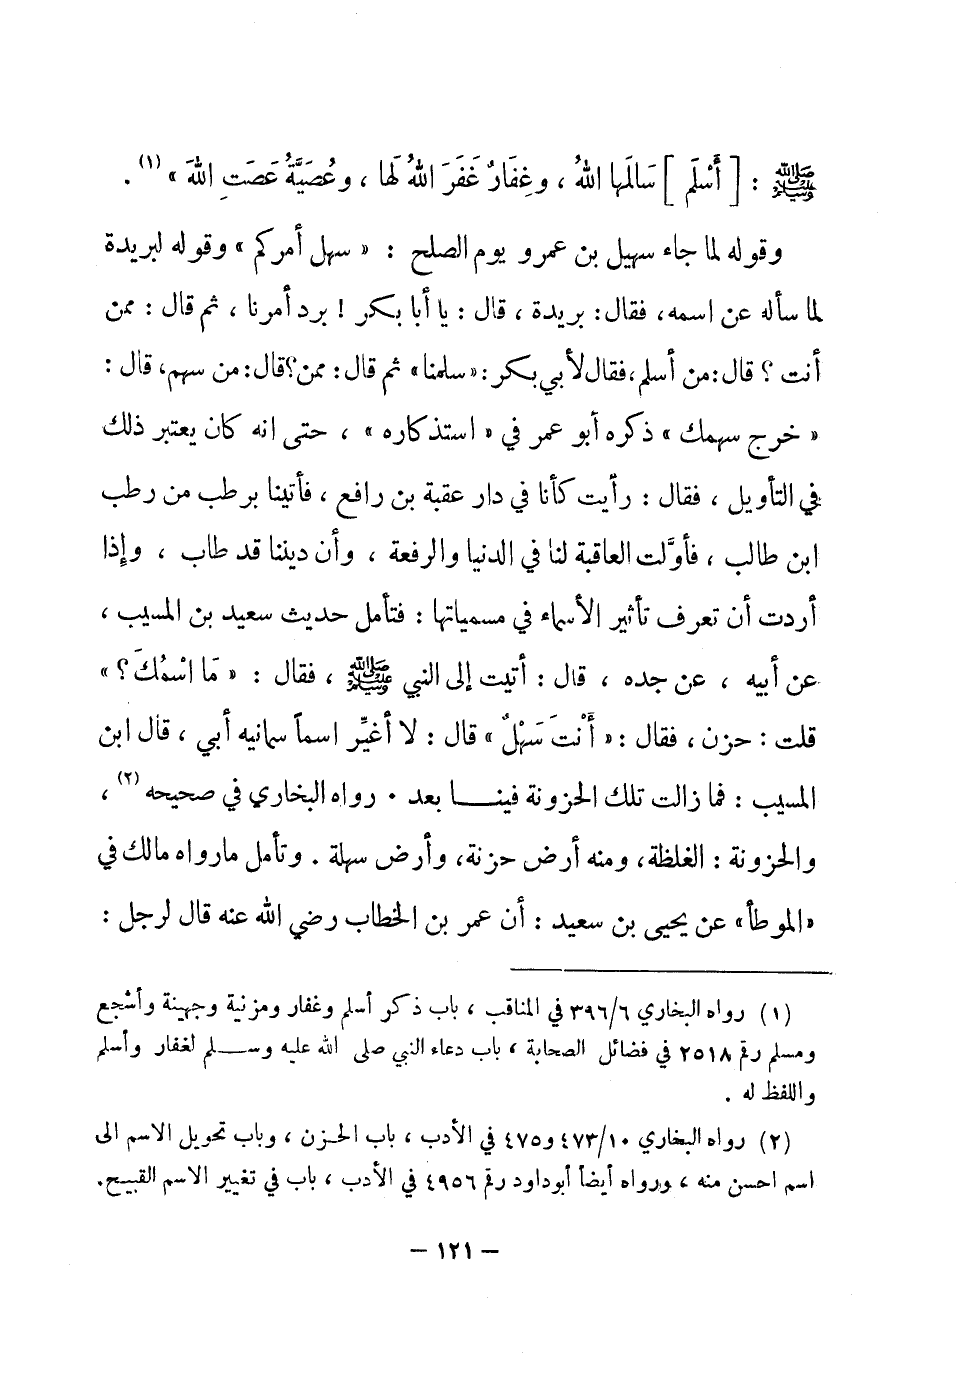 ﷺ : [ أَسْلَم ] سَالَمها اللهُ ، وغِفَارٌ غَفَرَ اللهُ لَها ، وعُصَيَّةُ عَصَتِ اللهَ » (١) .
وقوله لما جاء سهيل بن عمرو يوم الصلح : « سهل أمركم » وقوله لبريدة
لما سأله عن اسمه، فقال: بريدة ، قال : يا أبا بكر ! برد أمرنا ، ثم قال : ممن
أنت ؟ قال :من أسلم،فقال لأبي بكر :«سلمنا» ثم قال : ممن؟قال:من سهم، قال :
« خرج سهمك » ذكره أبو عمر في « استذكاره » ، حتى انه كان يعتبر ذلك
في التأويل ، فقال : رأيت كأنا في دار عقبة بن رافع ، فأتينا برطب من رطب
ابن طالب ، فأوَّلت العاقبة لنا في الدنيا والرفعة ، وأن ديننا قد طاب ، وإذا
أردت أن تعرف تأثير الأسماء في مسمياتها : فتأمل حديث سعيد بن المسيب ،
عن أبيه ، عن جده ، قال : أتيت إلى النبي ﷺ ، فقال : « مَا اسْمُكَ ؟ »
قلت : حزن ، فقال : « أَنْتَ سَهْلٌ » قال : لا أغيِّر اسماً سمانيه أبي ، قال ابن
المسيب : فما زالت تلك الحزونة فينـــا بعد . رواه البخاري في صحيحه (٢) ،
والحزونة : الغلظة، ومنه أرض حزنة، وأرض سهلة . وتأمل مارواه مالك في
«الموطأ» عن يحيى بن سعيد : أن عمر بن الخطاب رضي الله عنه قال لرجل :
(١) رواه البخاري ٣٩٦/٦ في المناقب ، باب ذكر أسلم وغفار ومزنية وجهينة وأشجع
ومسلم رقم ٢٥١٨ في فضائل الصحابة ، باب دعاء النبي صلى الله عليه وســـلم لغفار وأسلم
واللفظ له .
(٢) رواه البخاري ٤٧٣/١٠ و٤٧٥ في الأدب ، باب الحزن ، وباب تحويل الاسم الى
اسم احسن منه ، ورواه أيضاً أبوداود رقم ٤٩٥٦ في الأدب ، باب في تغيير الاسم القبيح.
– ١٢١ –